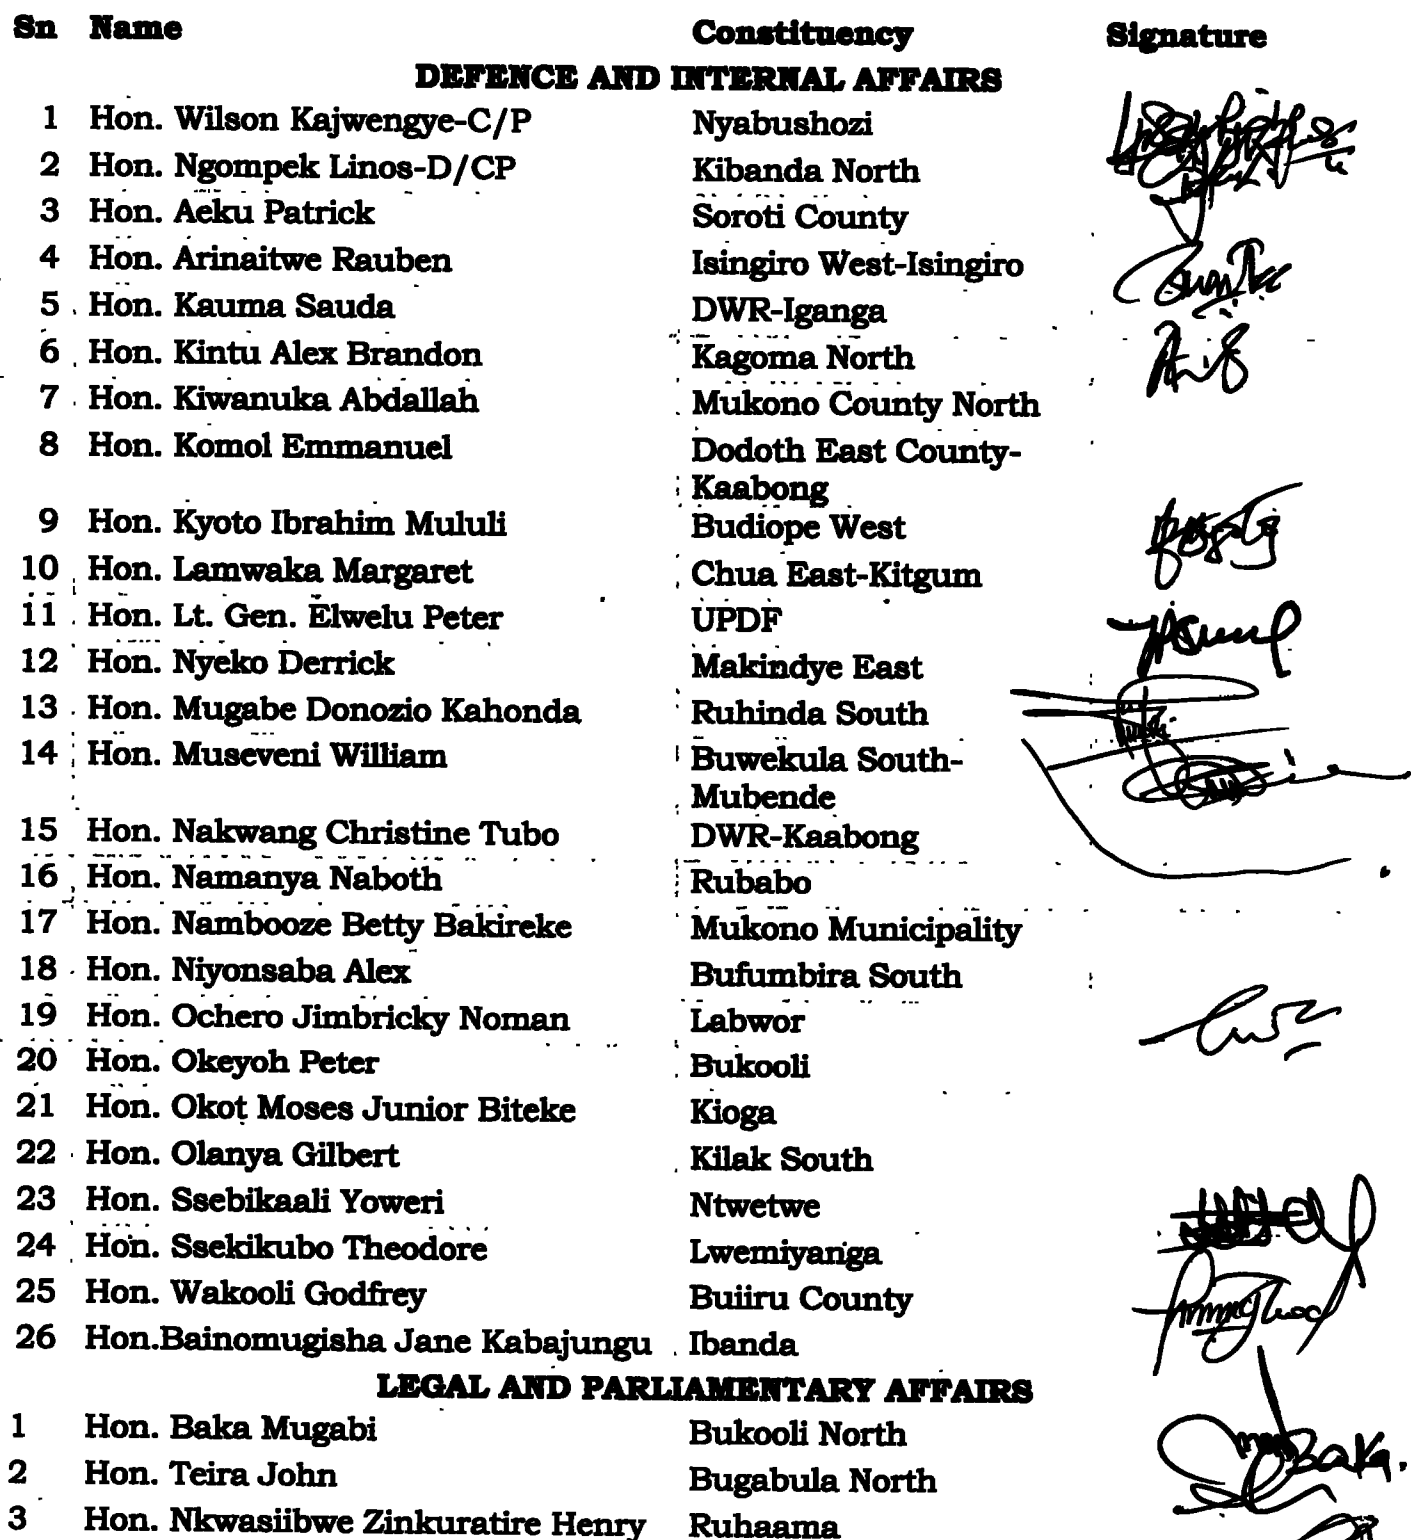 Sn Name Constituency Signature
DEFENCE AND INTERNAL AFFAIRS
1 Hon. Wilson Kajwengye-C/P Nyabushozi
2 Hon. Ngompek Linos-D/CP Kibanda North
3 Hon. Aeku Patrick Soroti County
4 Hon. Arinaitwe Rauben Isingiro West-Isingiro
5 Hon. Kauma Sauda DWR-Iganga
6 Hon. Kintu Alex Brandon Kagoma North
7 Hon. Kiwanuka Abdallah Mukono County North
8 Hon. Komol Emmanuel Dodoth East County-
Kaabong
9 Hon. Kyoto Ibrahim Mululi Budiope West
10 Hon. Lamwaka Margaret Chua East-Kitgum
11 Hon. Lt. Gen. Elwelu Peter UPDF
12 Hon. Nyeko Derrick Makindye East
13 Hon. Mugabe Donozio Kahonda Ruhinda South
14 Hon. Museveni William Buwekula South-
Mubende
15 Hon. Nakwang Christine Tubo DWR-Kaabong
16 Hon. Namanya Naboth Rubabo
17 Hon. Nambooze Betty Bakireke Mukono Municipality
18 Hon. Niyonsaba Alex Bufumbira South
19 Hon. Ochero Jimbricky Noman Labwor
20 Hon. Okeyoh Peter Bukooli
21 Hon. Okot Moses Junior Biteke Kioga
22 Hon. Olanya Gilbert Kilak South
23 Hon. Ssebikaali Yoweri Ntwetwe
24 Hon. Ssekikubo Theodore Lwemiyanga
25 Hon. Wakooli Godfrey Buiiru County
26 Hon.Bainomugisha Jane Kabajungu Ibanda
LEGAL AND PARLIAMENTARY AFFAIRS
1 Hon. Baka Mugabi Bukooli North Baka.
2 Hon. Teira John Bugabula North
3 Hon. Nkwasiibwe Zinkuratire Henry Ruhaama